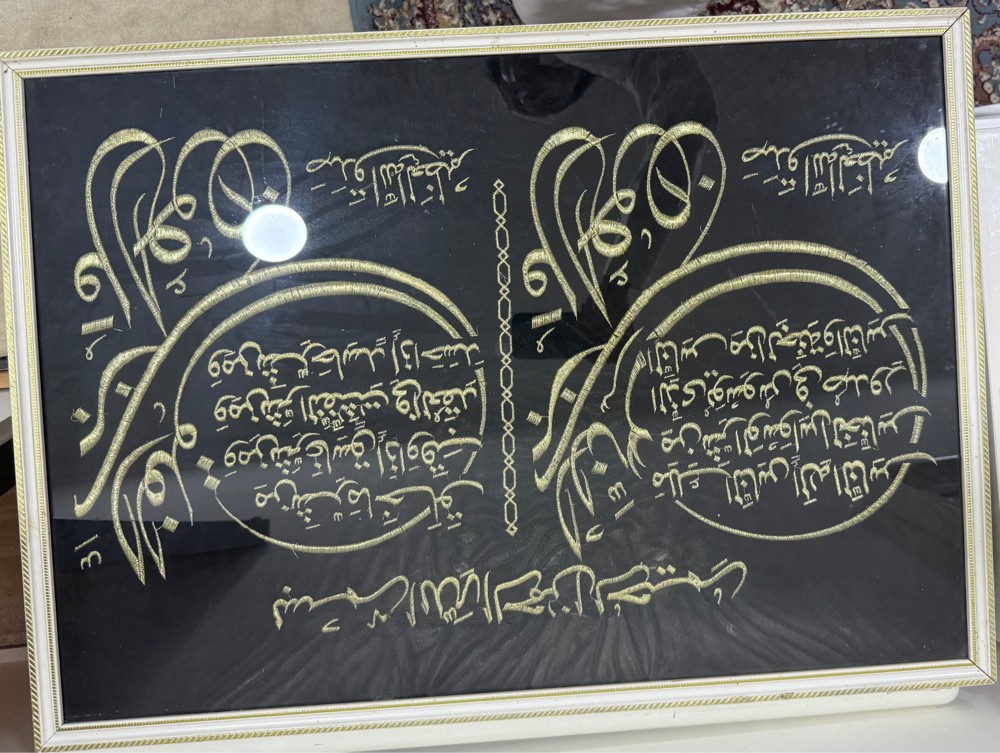 بسم الله الرحمن الرحيم
قل أعوذ برب الفلق
من شر ما خلق
ومن شر غاسق إذا وقب
ومن شر النفثت في العقد
ومن شر حاسد إذا حسد
صدق الله العظيم
قل أعوذ برب الناس
ملك الناس إله الناس
من شر الوسواس الخناس
الذي يوسوس في صدور
الناس من الجنة والناس
صدق الله العظيم